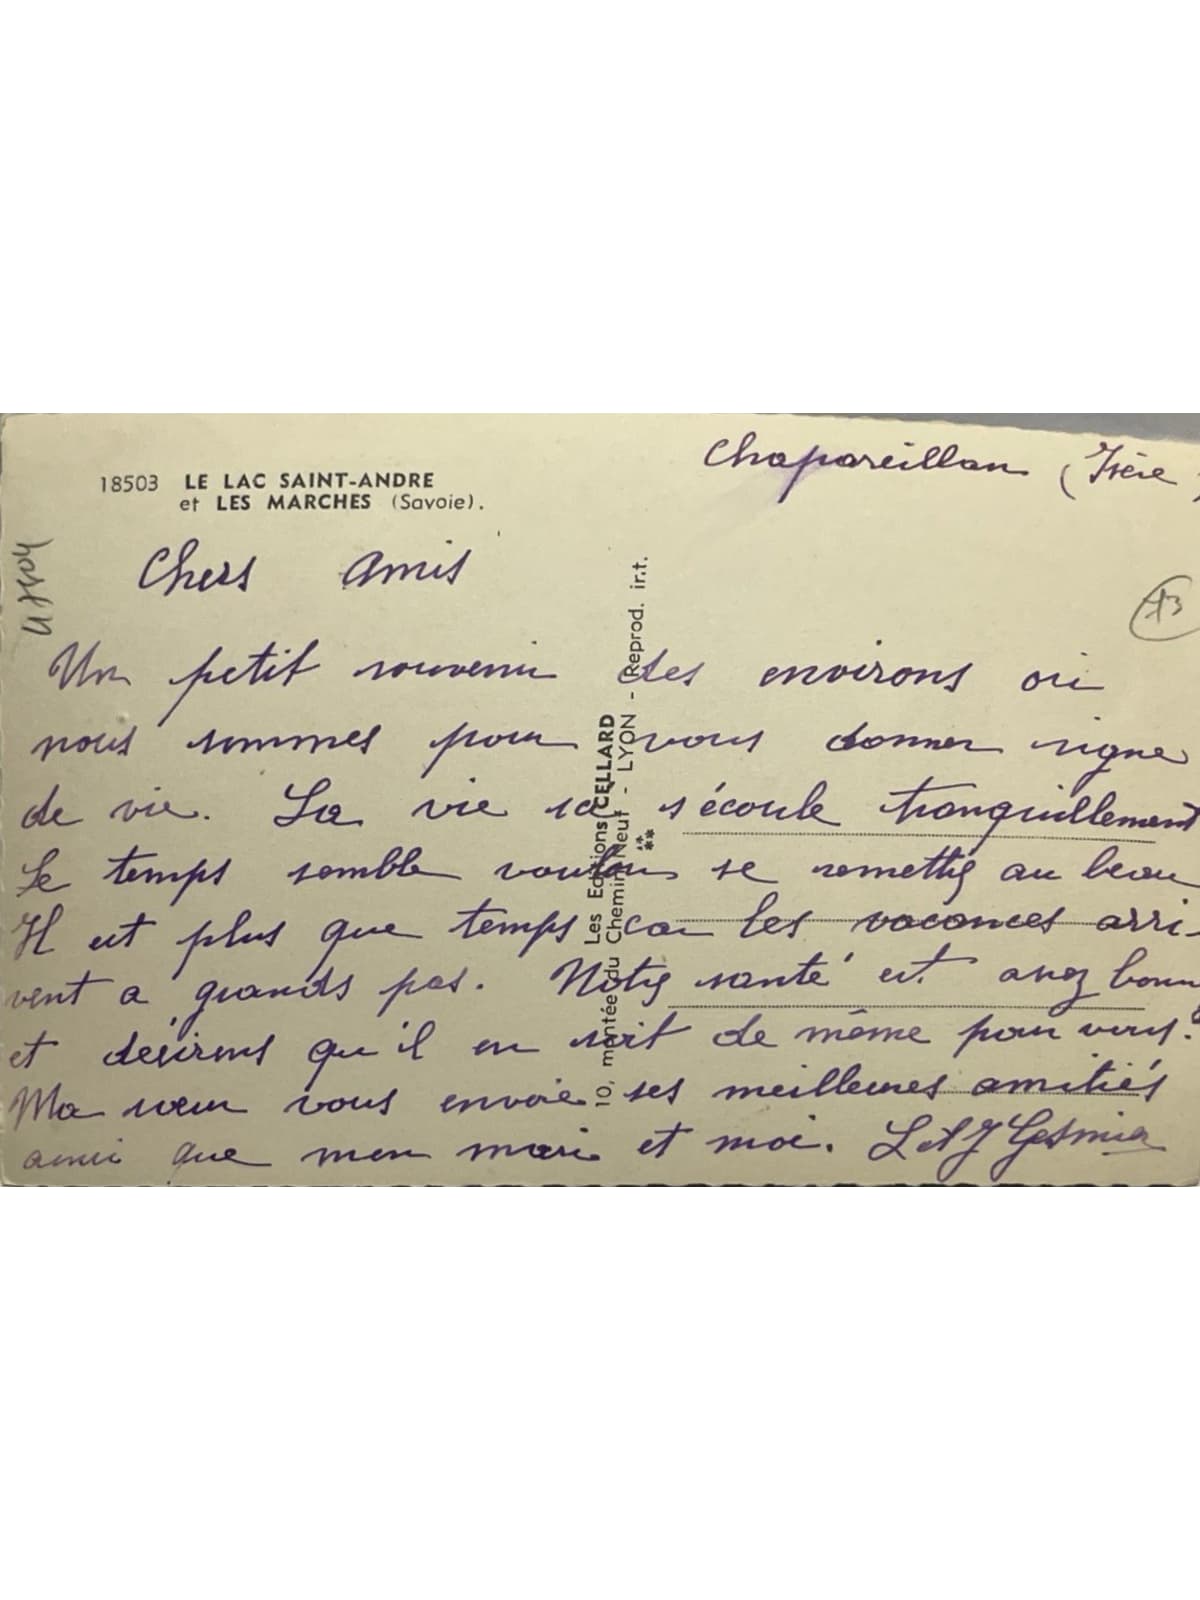 Chapareillan (Isère)
18503 LE LAC SAINT-ANDRE
et LES MARCHES (Savoie).
Chers amis
Un petit souvenir des environs où
nous sommes pour vous donner signe
de vie. La vie ici s'écoule tranquillement
Le temps semble vouloir se remettre au beau
Il est plus que temps car les vacances arri-
vent a grands pas. Notre santé est assez bonne
et désirons qu'il en soit de même pour vous.
Ma sœur vous envoie ses meilleures amitiés
ainsi que mon mari et moi. L et J
Les Editions CELLARD
10, montée du Chemin Neuf - LYON - Reprod. int.